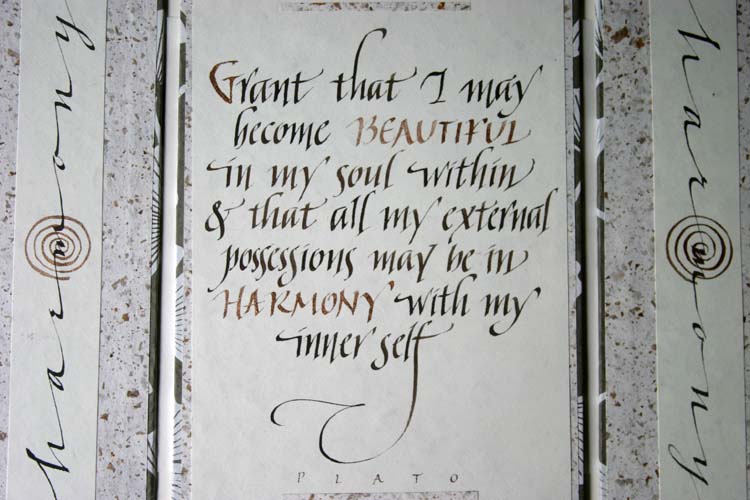 harmony
Grant that I may
become BEAUTIFUL
in my soul within
& that all my external
possessions may be in
HARMONY with my
inner self
PLATO
harmony